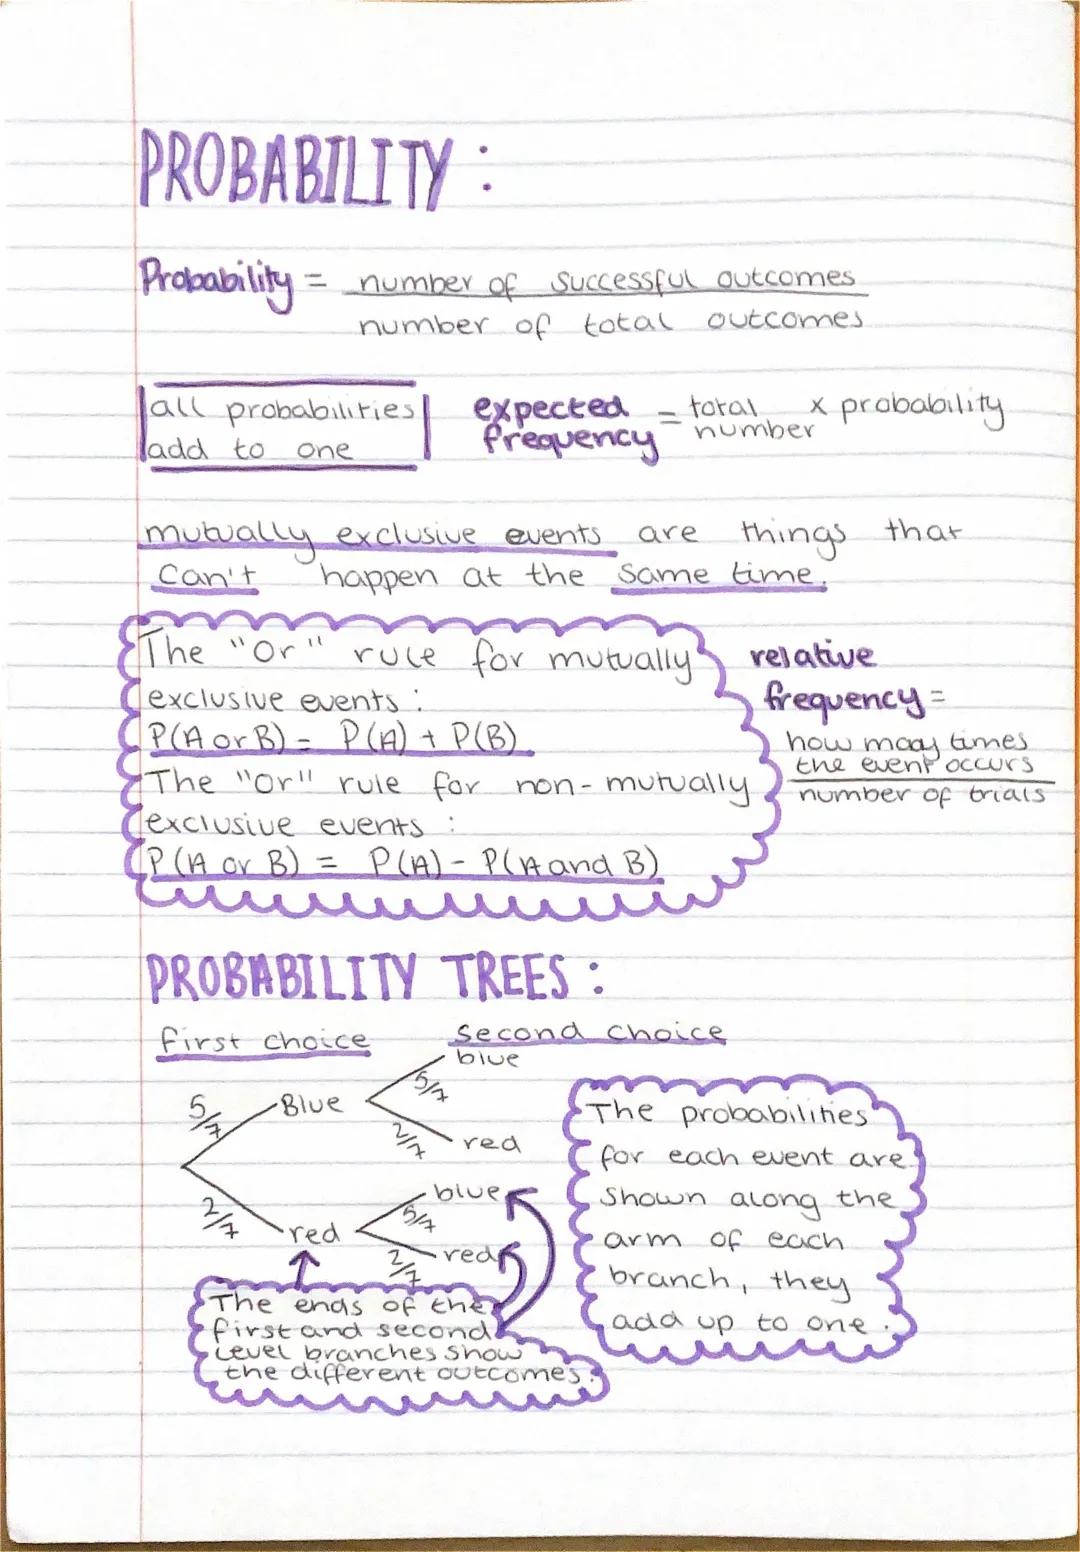 PROBABILITY :
Probability = number of successful outcomes
number of total outcomes
all probabilities
add to one
expected frequency = total number x probability
mutually exclusive events are things that
can't happen at the same time.
The "Or" rule for mutually
exclusive events :
P(A or B) = P(A) + P(B)
The "or" rule for non-mutually
exclusive events :
P(A or B) = P(A) - P(A and B)
relative
frequency =
how many times
the event occurs
number of trials
PROBABILITY TREES :
first choice
second choice
5/7
Blue
5/7
blue
2/7
red
2/7
red
5/7
blue
2/7
red
The ends of the
first and second
level branches show
the different outcomes.
The probabilities
for each event are
shown along the
arm of each
branch, they
add up to one.